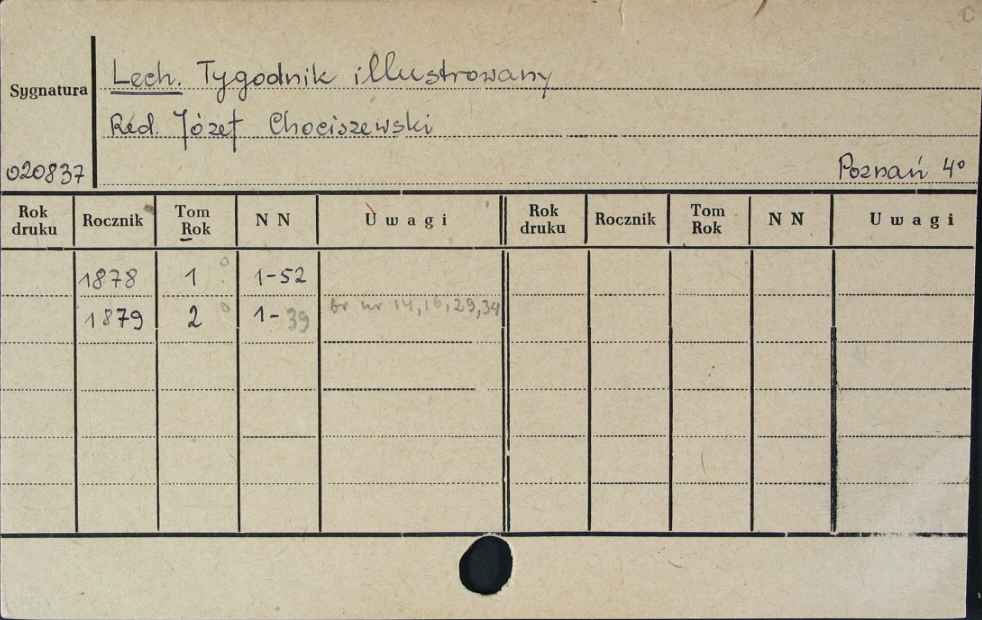 C
Lech. Tygodnik illustrowany
Sygnatura
Red. Józef Chociszewski
020837
Poznań 4º
Rok druku Rocznik Tom Rok N N Uwagi Rok druku Rocznik Tom Rok N N Uwagi
1878 1 1-52
1879 2 1-39 br nr 14, 16, 29, 34